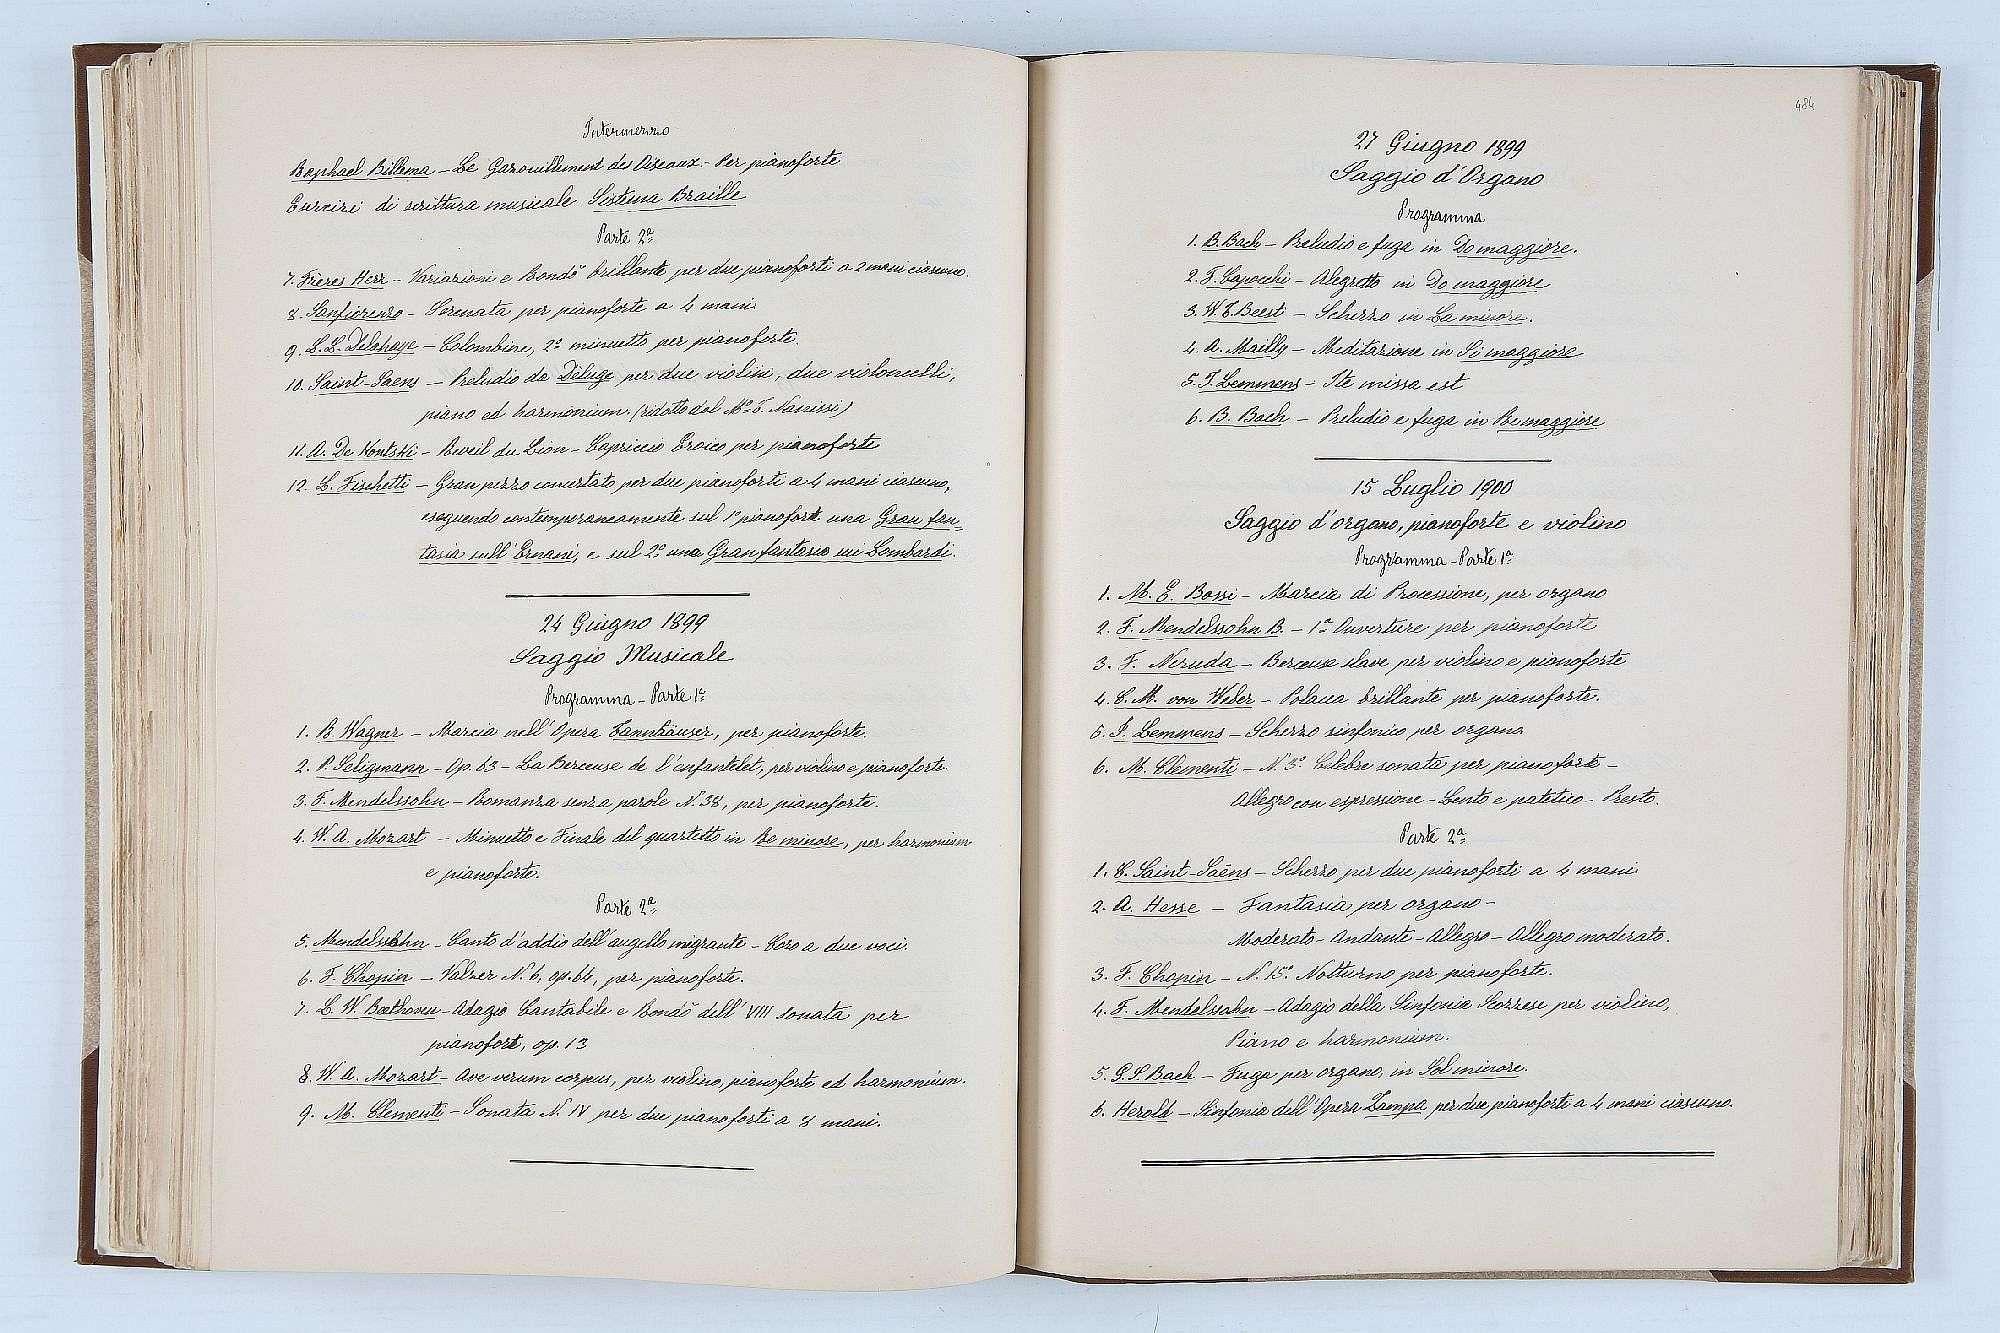 Intermezzo
Raphael Billema – Le Gazouillement des Oiseaux – Per pianoforte
Esercizi di scrittura musicale Sistema Braille
Parte 2ª
7. Frères Herz – Variazioni e Rondò brillante per due pianoforti a 2 mani ciascuno.
8. Sanfiorenzo – Serenata per pianoforte a 4 mani
9. L. L. Delahaye – Colombine, 2º minuetto per pianoforte.
10. Saint-Saens – Preludio da Déluge per due violini, due violoncelli,
piano ed harmonium. (ridotto dal Mº F.
11. A. De Kontski – Reveil du Lion – Capriccio Eroico per pianoforte
12. L. Fischetti – Gran pezzo concertato per due pianoforti a 4 mani ciascuno,
eseguendo contemporaneamente sul 1º pianoforte una Gran fan-
tasia sull'Ernani, e sul 2º una Gran fantasia sui Lombardi.
24 Giugno 1899
Saggio Musicale
Programma – Parte 1ª
1. R. Wagner – Marcia nell'Opera Tannhäuser, per pianoforte.
2. P. Seligmann – Op. 63 – La Berceuse de l'enfantelet, per violino e pianoforte.
3. F. Mendelssohn – Romanza senza parole N. 38, per pianoforte.
4. W. A. Mozart – Minuetto e Finale del quartetto in Re minore, per harmonium
e pianoforte.
Parte 2ª
5. Mendelssohn – Canto d'addio dell'augello migrante – Coro a due voci.
6. F. Chopin – Valzer N. 6, op. 64, per pianoforte.
7. L. W. Beethoven – Adagio Cantabile e Rondò dell'VIII sonata per
pianoforte, op. 13
8. W. A. Mozart – Ave verum corpus, per violino, pianoforte ed harmonium.
9. M. Clementi – Sonata N. IV per due pianoforti a 8 mani.
484
27 Giugno 1899
Saggio d'Organo
Programma
1. B. Bach – Preludio e fuga in Do maggiore.
2. F. Capocchi – Alegretto in Do maggiore
3. W. T. Beest – Scherzo in La minore.
4. A. Mailly – Meditazione in Si maggiore
5. J. Lemmens – Ite missa est
6. B. Bach – Preludio e fuga in Re maggiore
15 Luglio 1900
Saggio d'organo, pianoforte e violino
Programma – Parte 1ª
1. M. E. Bossi – Marcia di Processione, per organo
2. F. Mendelssohn B. – 1ª Ouverture per pianoforte
3. F. Neruda – Berceuse slave per violino e pianoforte
4. C. M. von Weber – Polacca brillante per pianoforte.
5. J. Lemmens – Scherzo sinfonico per organo
6. M. Clementi – N. 3º Celebre sonata per pianoforte –
Allegro con espressione – Lento e patetico – Presto.
Parte 2ª
1. C. Saint-Saëns – Scherzo per due pianoforti a 4 mani
2. A. Hesse – Fantasia per organo –
Moderato – Andante – Allegro – Allegro moderato.
3. F. Chopin – N. 15º Notturno per pianoforte.
4. F. Mendelssohn – Adagio della Sinfonia Scozzese per violino,
Piano e harmonium.
5. G. S. Bach – Fuga per organo, in Sol minore.
6. Herold – Sinfonia dell'Opera Zampa per due pianoforti a 4 mani ciascuno.